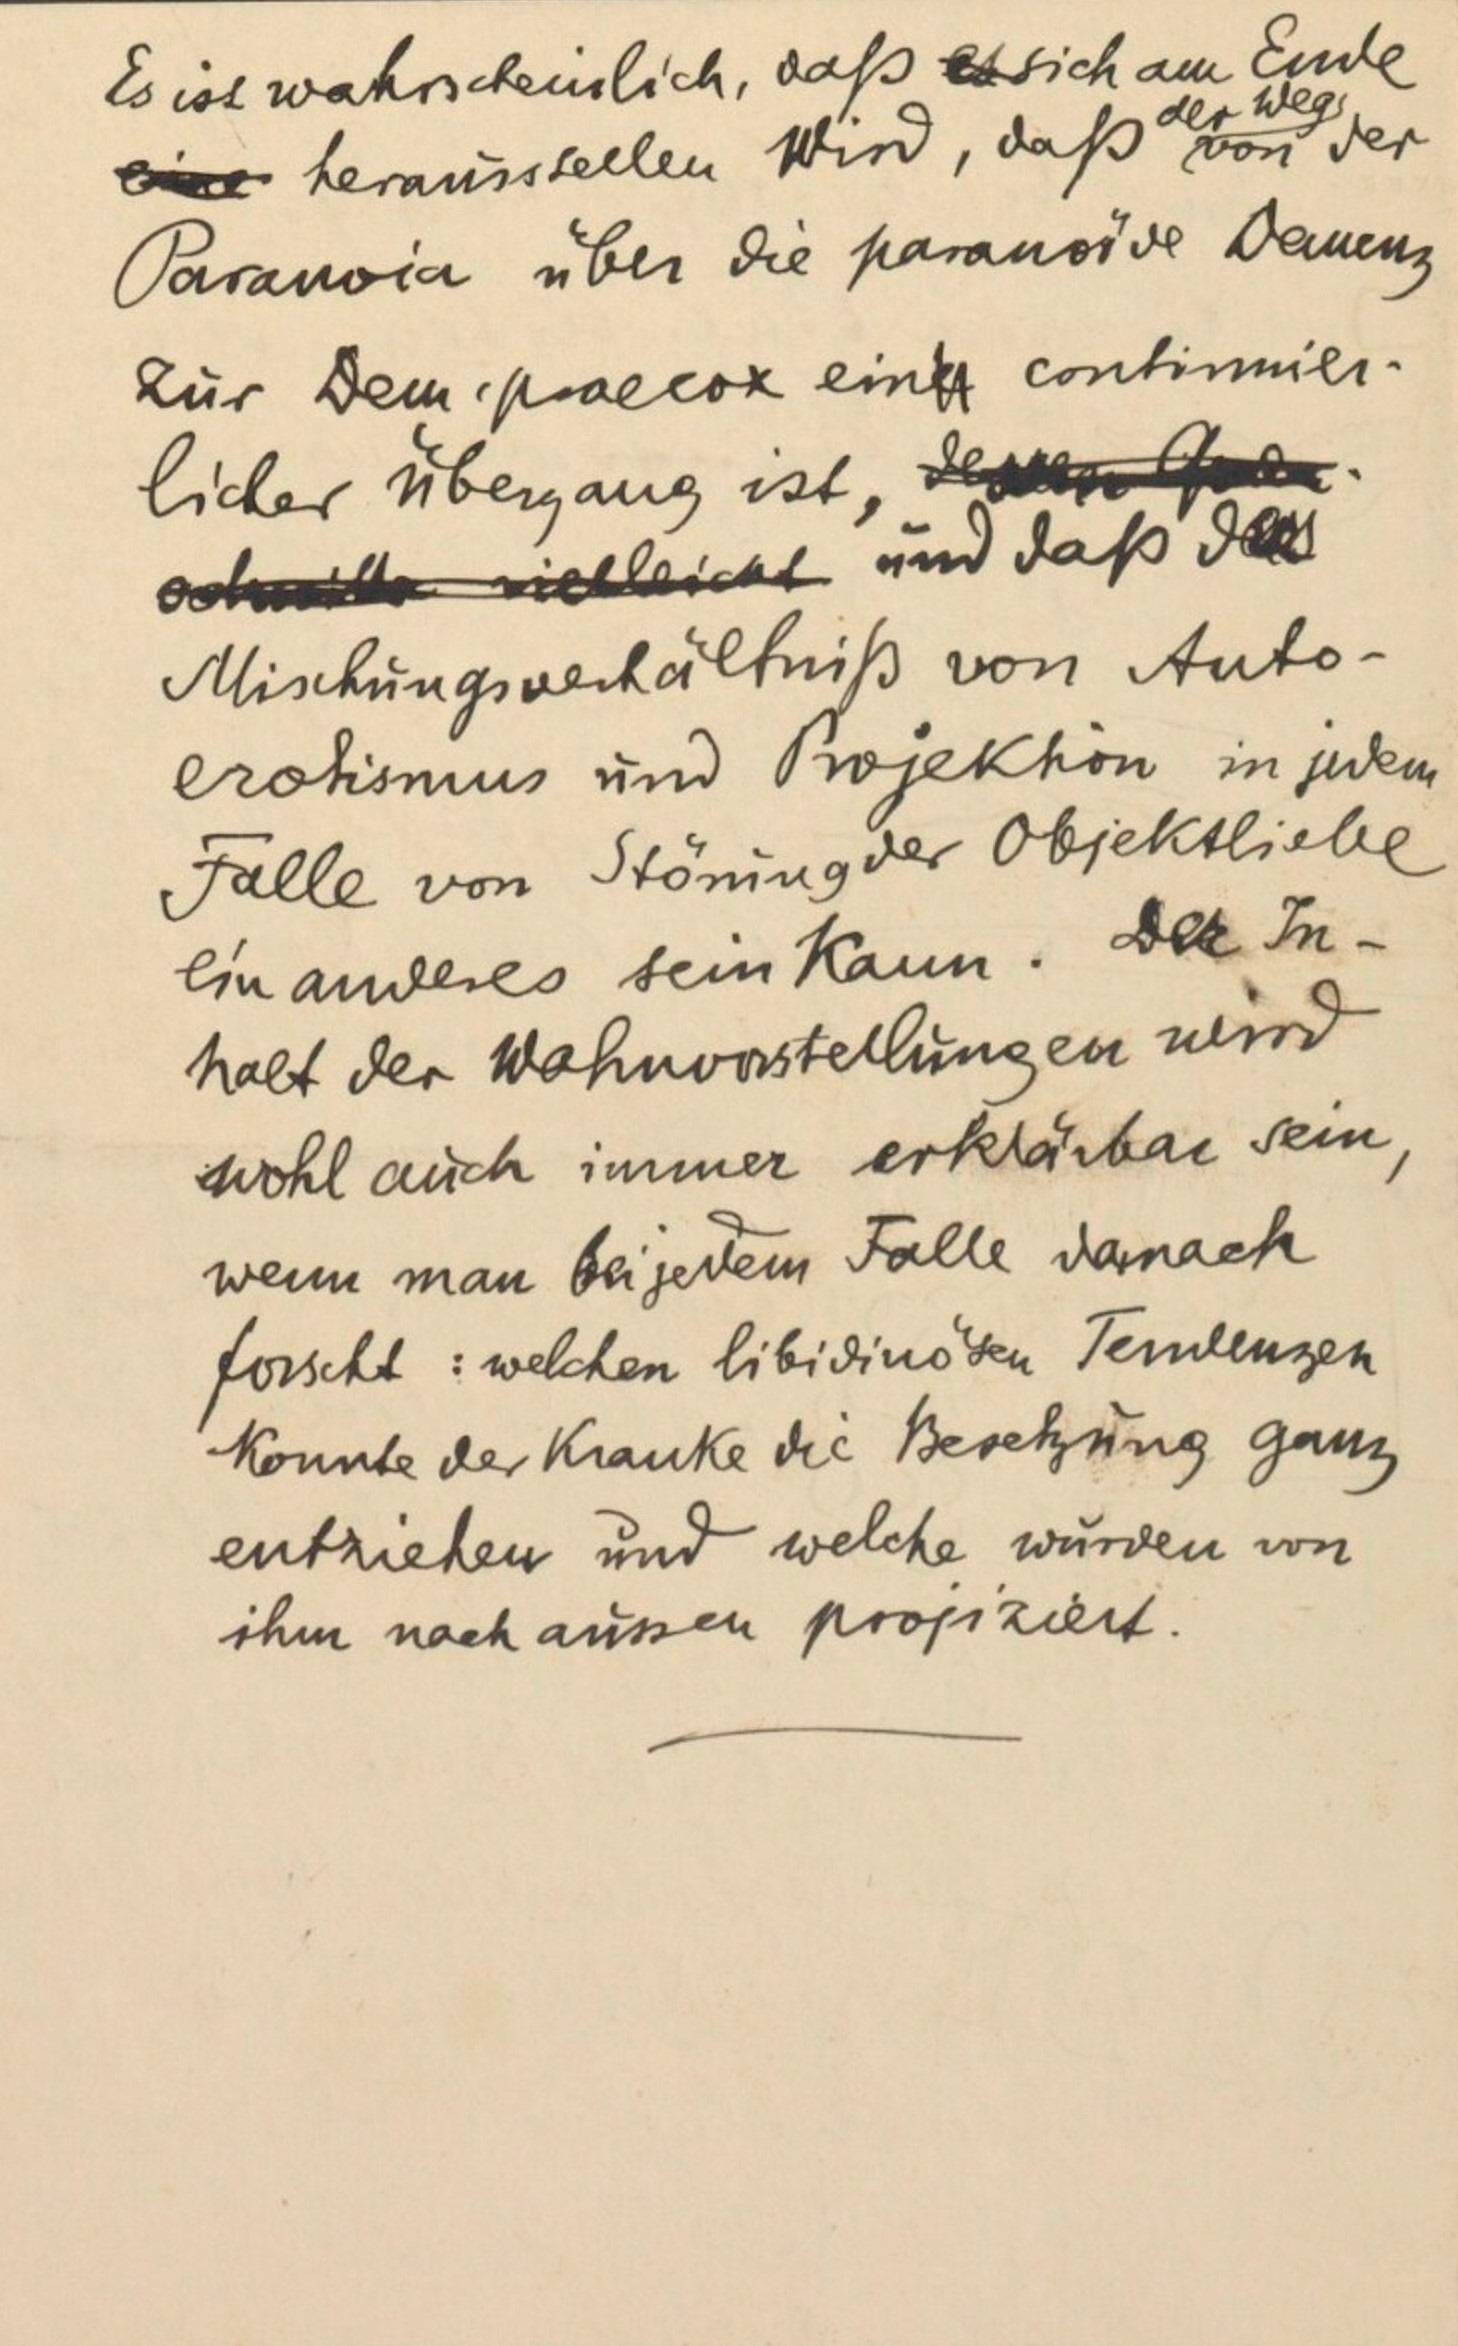 Es ist wahrscheinlich, daß es sich am Ende
eine herausstellen wird, daß der Weg von der
Paranoia über die paranoïde Demenz
zur Dem. praecox ein continuier-
licher Übergang ist,
vielleicht und daß das
Mischungsverhältniß von Auto-
erotismus und Projektion in jedem
Falle von Störung der Objektliebe
ein anderes sein kann. Der In-
halt der Wahnvorstellungen wird
wohl auch immer erklärbar sein,
wenn man bei jedem Falle darnach
forscht: welchen libidinösen Tendenzen
konnte der Kranke die Besetzung ganz
entziehen und welche wurden von
ihm nach aussen projiziert.